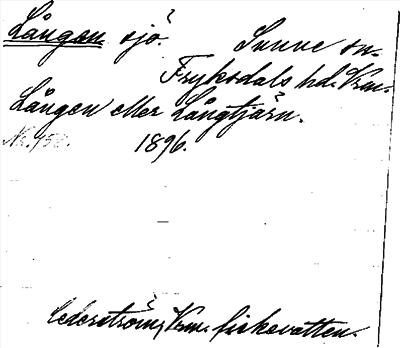 Lången sjö? Sunne sn.
Fryksdals hd. Vrm.
Lången eller Långtjärn.
1896.
Cederström, Vrm. fiskevatten.